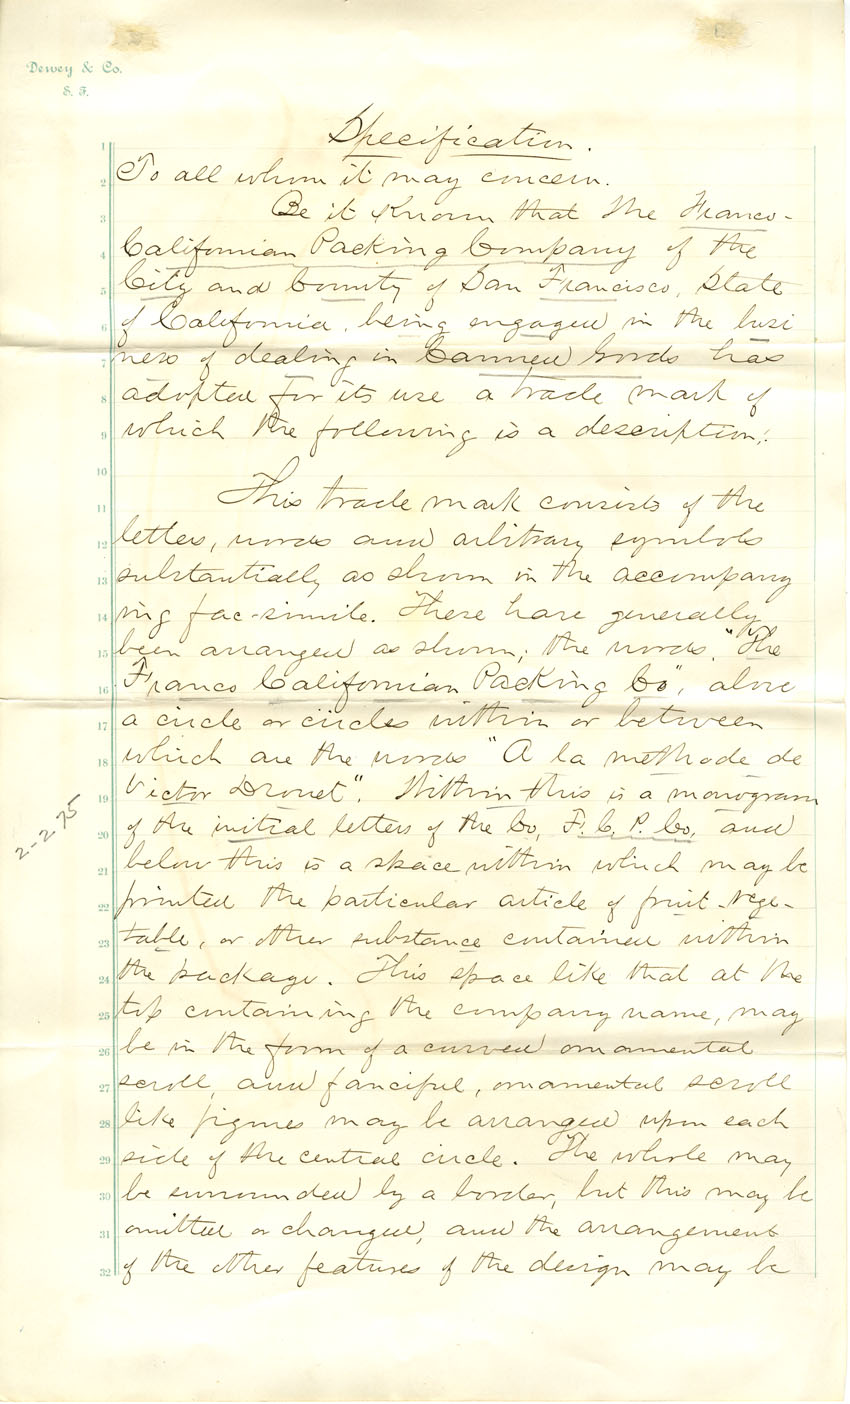 Dewey & Co.
S. F.
Specification.
1
2 To all whom it may concern.
3 Be it Known that the Franco-
4 Californian Packing Company of the
5 City and County of San Francisco, State
6 of California, being engaged in the busi
7 ness of dealing in Canned Goods has
8 adopted for its use a trade mark of
9 which the following is a description:
10
11 This trade mark consists of the
12 letters, words and arbitrary symbols
13 substantially as shown in the accompany
14 ing fac-simile. These have generally
15 been arranged as shown; the words, "The
16 Franco Californian Packing Co", above
17 a circle or circles within or between
18 which are the words "A la methode de
19 Victor Drouet". Within this is a monogram
20 of the initial letters of the Co, F. C. P. Co, and
21 below this is a space within which may be
22 printed the particular article of fruit - vege-
23 table, or other substance contained within
24 the package. This space like that at the
25 top containing the company name, may
26 be in the form of a curved ornamental
27 scroll, and fanciful, ornamental scroll
28 like figures may be arranged upon each
29 side of the central circle. The whole may
30 be surrounded by a border, but this may be
31 omitted or changed, and the arrangement
32 of the other features of the design may be
2-2-75